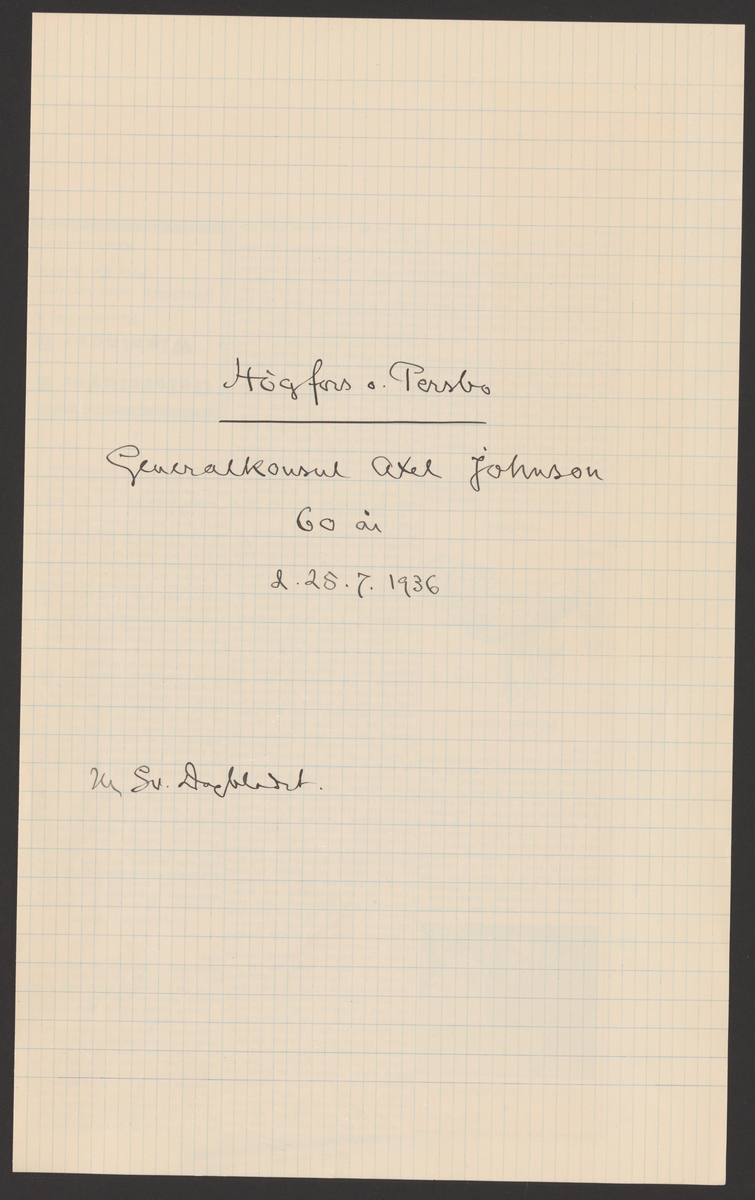 Högfors o. Persbo
Generalkonsul Axel Johnson
60 år
d. 25.7. 1936
Ur Sv. Dagbladet.